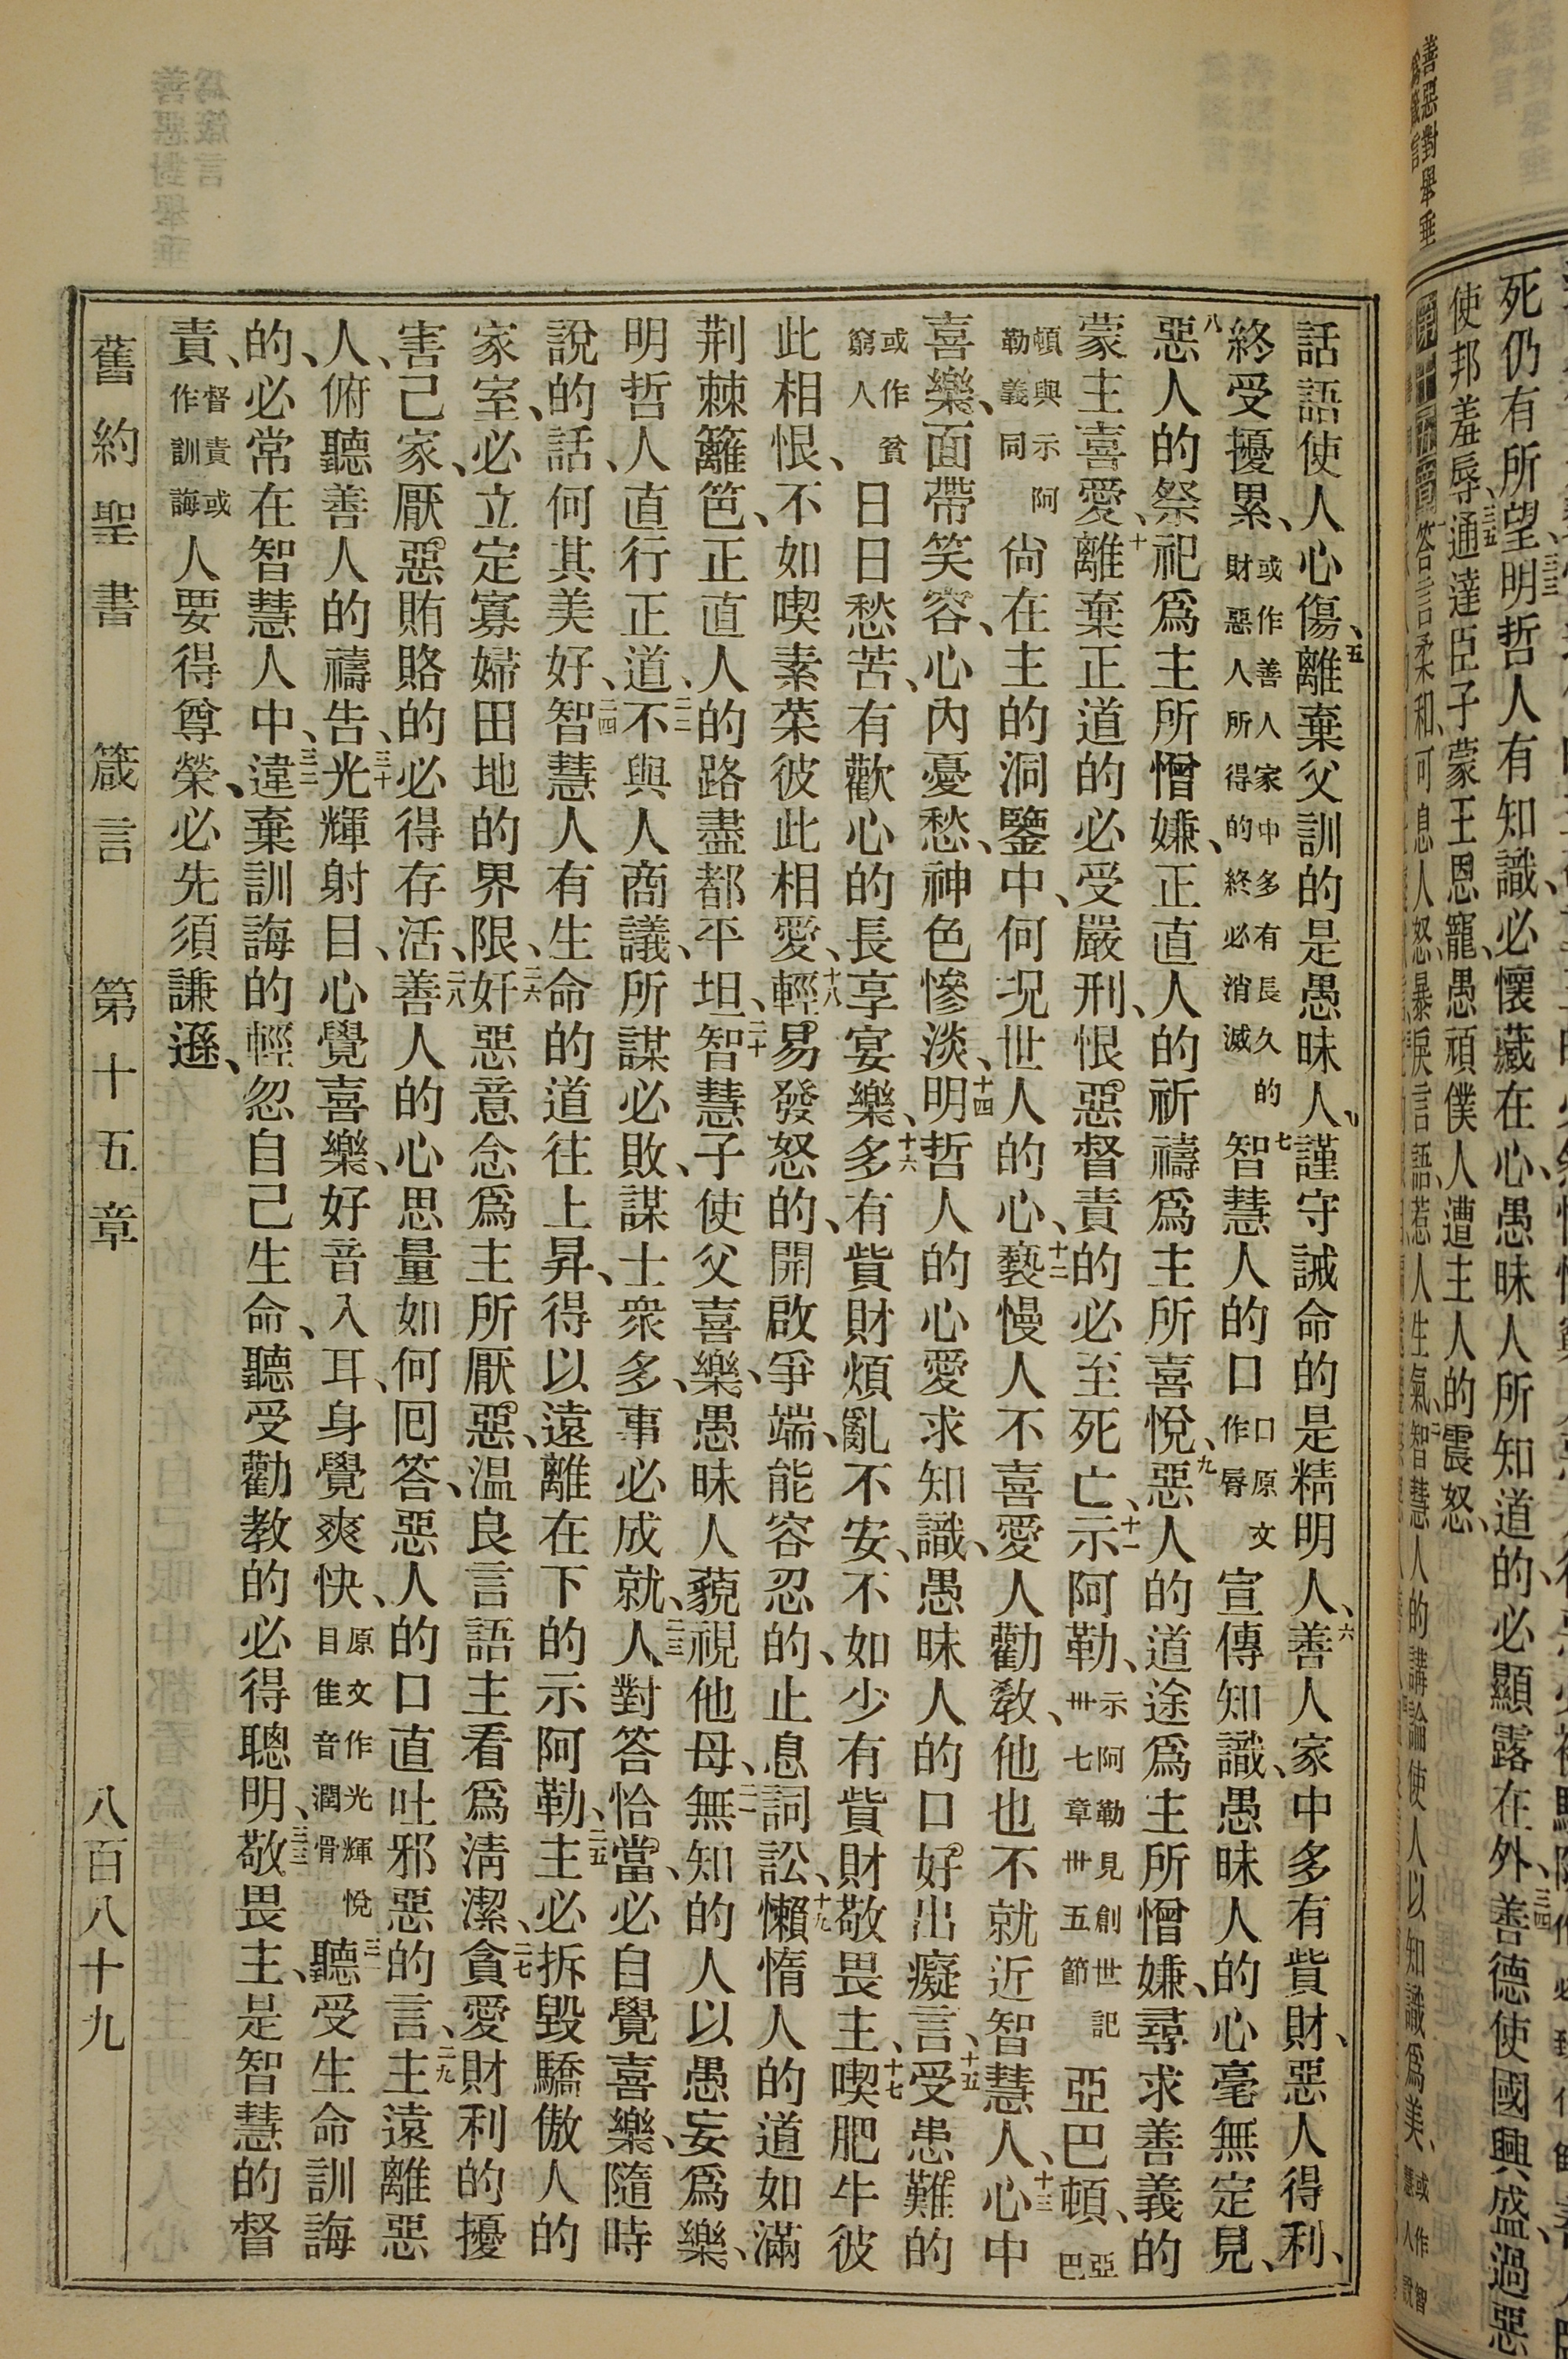 善惡對舉垂
爲箴言
死仍有所望、明哲人有知識、必懷藏在心、愚昧人所知道的、必顯露在外、三四善德使國興盛、過惡
使邦羞辱、三五通達臣子蒙王恩寵、愚頑僕人遭主人的震怒、
答言柔和、可息人怒、暴戾言語、惹人生氣、二智慧人的講論使人以知識爲美、
話語使人心傷、五離棄父訓的是愚昧人、謹守誡命的是精明人、六善人家中多有貲財、惡人得利、
終受擾累、或作善人家中多有長久的財惡人所得的終必消滅七智慧人的口口原文作脣宣傳知識、愚昧人的心毫無定見、
八惡人的祭祀爲主所憎嫌、正直人的祈禱爲主所喜悅、九惡人的道途爲主所憎嫌、尋求善義的
蒙主喜愛、十離棄正道的必受嚴刑、恨惡督責的必至死亡、十一示阿勒、示阿勒見創世記卅七章卅五節亞巴頓、亞巴
頓與示阿勒義同尚在主的洞鑒中、何况世人的心、十二褻慢人不喜愛人勸教、他也不就近智慧人、十三心中
喜樂、面帶笑容、心內憂愁、神色慘淡、十四明哲人的心愛求知識、愚昧人的口好出癡言、十五受患難的
或作貧窮人日日愁苦、有歡心的長享宴樂、十六多有貲財煩亂不安、不如少有貲財敬畏主、十七喫肥牛彼
此相恨、不如喫素菜彼此相愛、十八輕易發怒的、開啟爭端、能容忍的、止息詞訟、十九懶惰人的道如滿
荆棘籬笆、正直人的路盡都平坦、二十智慧子使父喜樂、愚昧人藐視他母、二一無知的人以愚妄爲樂、
明哲人直行正道、二二不與人商議、所謀必敗、謀士衆多、事必成就、二三人對答恰當、必自覺喜樂、隨時
說的話、何其美好、二四智慧人有生命的道往上昇、得以遠離在下的示阿勒、二五主必拆毀驕傲人的
家室、必立定寡婦田地的界限、二六奸惡意念爲主所厭惡、温良言語主看爲淸潔、二七貪愛財利的擾
害己家、厭惡賄賂的必得存活、二八善人的心思量如何囘答、惡人的口直吐邪惡的言、二九主遠離惡
人、俯聽善人的禱告、三十光輝射目、心覺喜樂、好音入耳、身覺爽快、原文作光輝悅目佳音潤骨三一聽受生命訓誨
的、必常在智慧人中、三二違棄訓誨的輕忽自己生命、聽受勸教的必得聰明、三三敬畏主、是智慧的督
責、督責或作訓誨人要得尊榮、必先須謙遜、
舊約聖書 箴言 第十五章 八百八十九